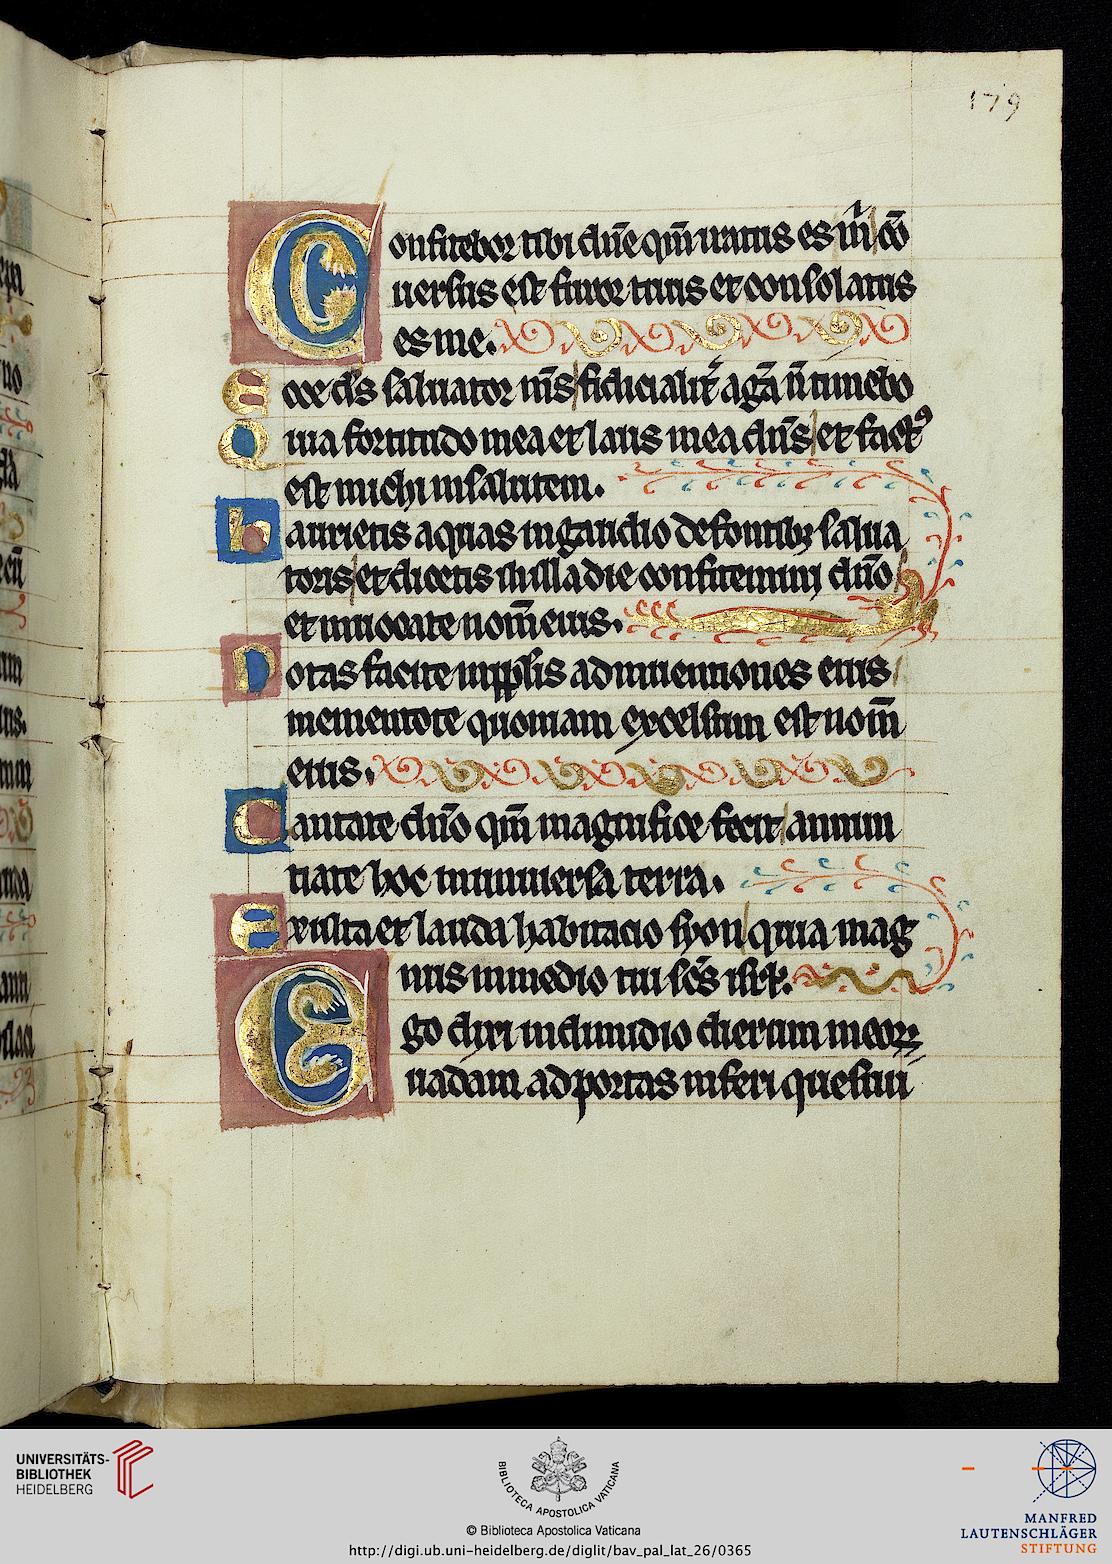 179
Confitebor tibi dn̄e qm̄ iratus es m̄ / cō
uersus est furor tuus et consolatus
es me.
Ecce d̄s saluator m̄s / fiducialit̄ agā n̄ timebo
Quia fortitudo mea et laus mea dn̄s / et fact⁹
est michi in salutem.
haurietis aquas in gaudio de fontibꝫ salua
toris / et dicetis in illa die confitemini dn̄o /
et inuocate nom̄ eius.
Notas facite in pp̄lis adinuentiones eius /
mementote quoniam excelsum est nom̄
eius.
Cantate dn̄o qm̄ magnifice fecit / annun
tiate hoc in uniuersa terra.
Exulta et lauda habitacio syon / quia mag
nus in medio tui sc̄s isrl̄.
Ego dixi in dimidio dierum meoꝝ
uadam ad portas inferi quesiui
UNIVERSITÄTS-
BIBLIOTHEK
HEIDELBERG
BIBLIOTECA APOSTOLICA VATICANA
© Biblioteca Apostolica Vaticana
http://digi.ub.uni-heidelberg.de/diglit/bav_pal_lat_26/0365
MANFRED
LAUTENSCHLÄGER
STIFTUNG